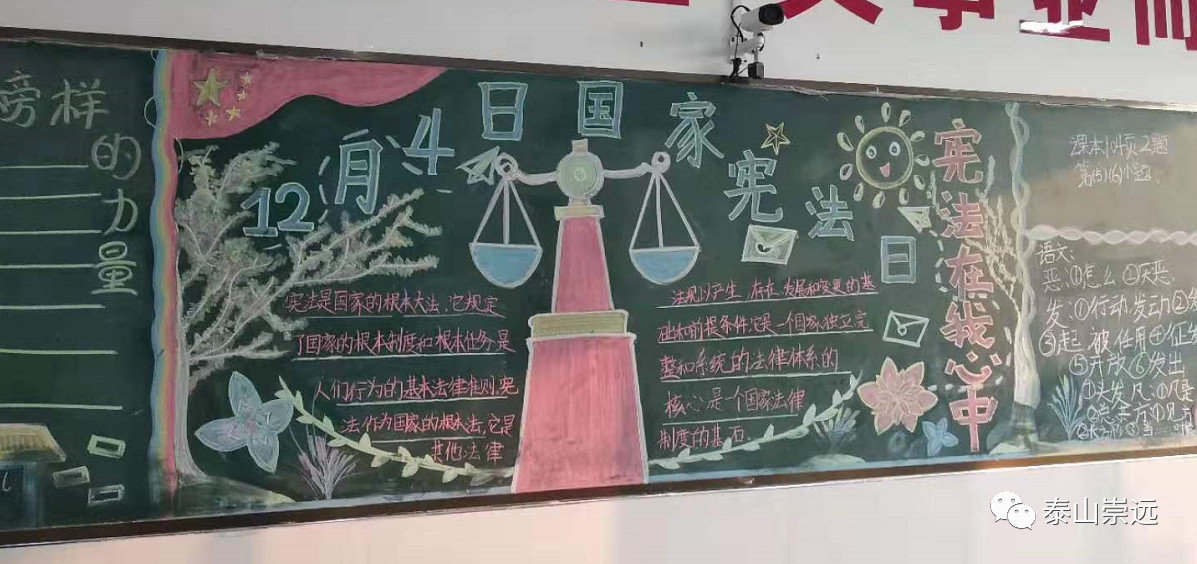 榜样
的力量
12月4日国家宪法日
宪法在我心中
宪法是国家的根本大法,它规定
了国家的根本制度和根本任务,是
人们行为的基本法律准则,宪
法作为国家的根本法,它是
其他法律
法规以产生、存在、发展和变更的基
础和前提条件,它是一个国家独立完
整和系统的法律体系的
核心,是一个国家法律
制度的基石.
课本104页2题
第(5)(6)小题
语文:
恶:①怎么②厌恶
发:①行动,发动②
③起 被任用④征发
⑤开放⑥发出
泰山崇远